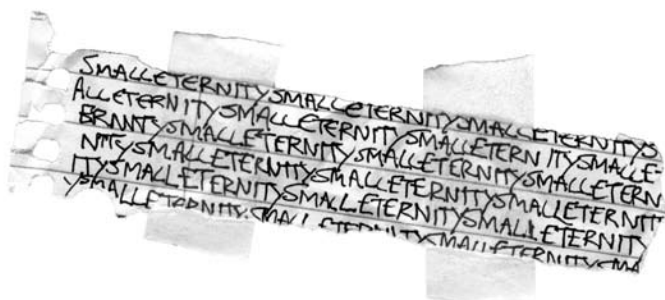 SMALLETERNITYSMALLETERNITYSMALLETERNITYS
ALLETERNITYSMALLETERNITYSMALLETERNITYSMALLE
ERNNTYSMALLETERNITYSMALLETERNITYSMALLETERN
NITYSMALLETERNITYSMALLETERNITYSMALLETERNIT
ITYSMALLETERNITYSMALLETERNITYSMALLETERNITY
YSMALLETERNITYSMALLETERNITYSMALLETERNITYSMA